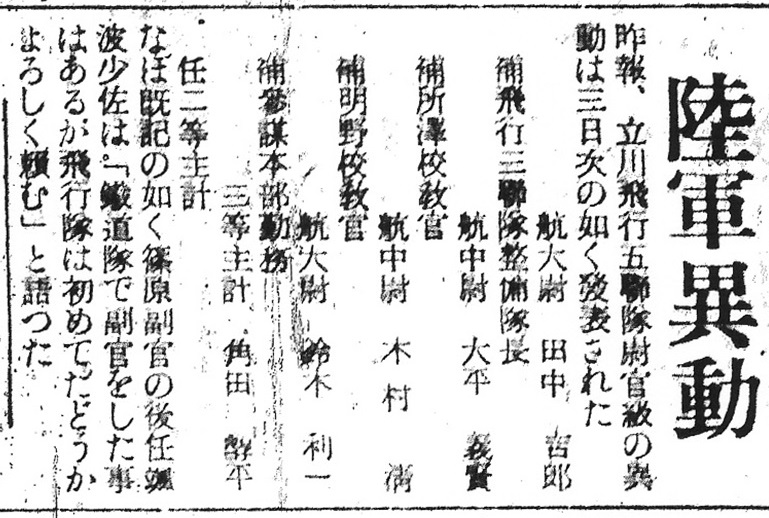 陸軍異動
昨報、立川飛行五聯隊尉官級の異
動は三日次の如く發表された
航大尉 田中 吉郎
補飛行三聯隊整備隊長
航中尉 大平 義賢
補所澤校敎官
航中尉 木村 清
補明野校敎官
航大尉 鈴木 利一
補參謀本部勤務
三等主計 角田 平
任二等主計
なほ既記の如く篠原副官の後任颯
波少佐は「鐵道隊で副官をした事
はあるが飛行隊は初めてだどうか
よろしく頼む」と語つた